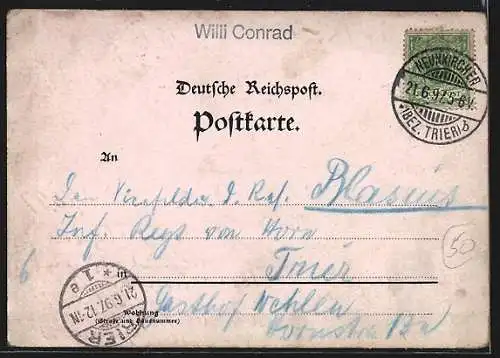 Willi Conrad
NEUNKIRCHEN
21.6.97. 5-6 N.
(BEZ. TRIER) d
Deutsche Reichspost.
Postkarte.
An
Den Vizefeldw. d. Res. Blasius
Inf. Regt von Horn
6
in Trier
Gasthof
Wohnung
(Straße und Hausnummer)
TRIER
21.6.97. 12-1N
* 1 e
50